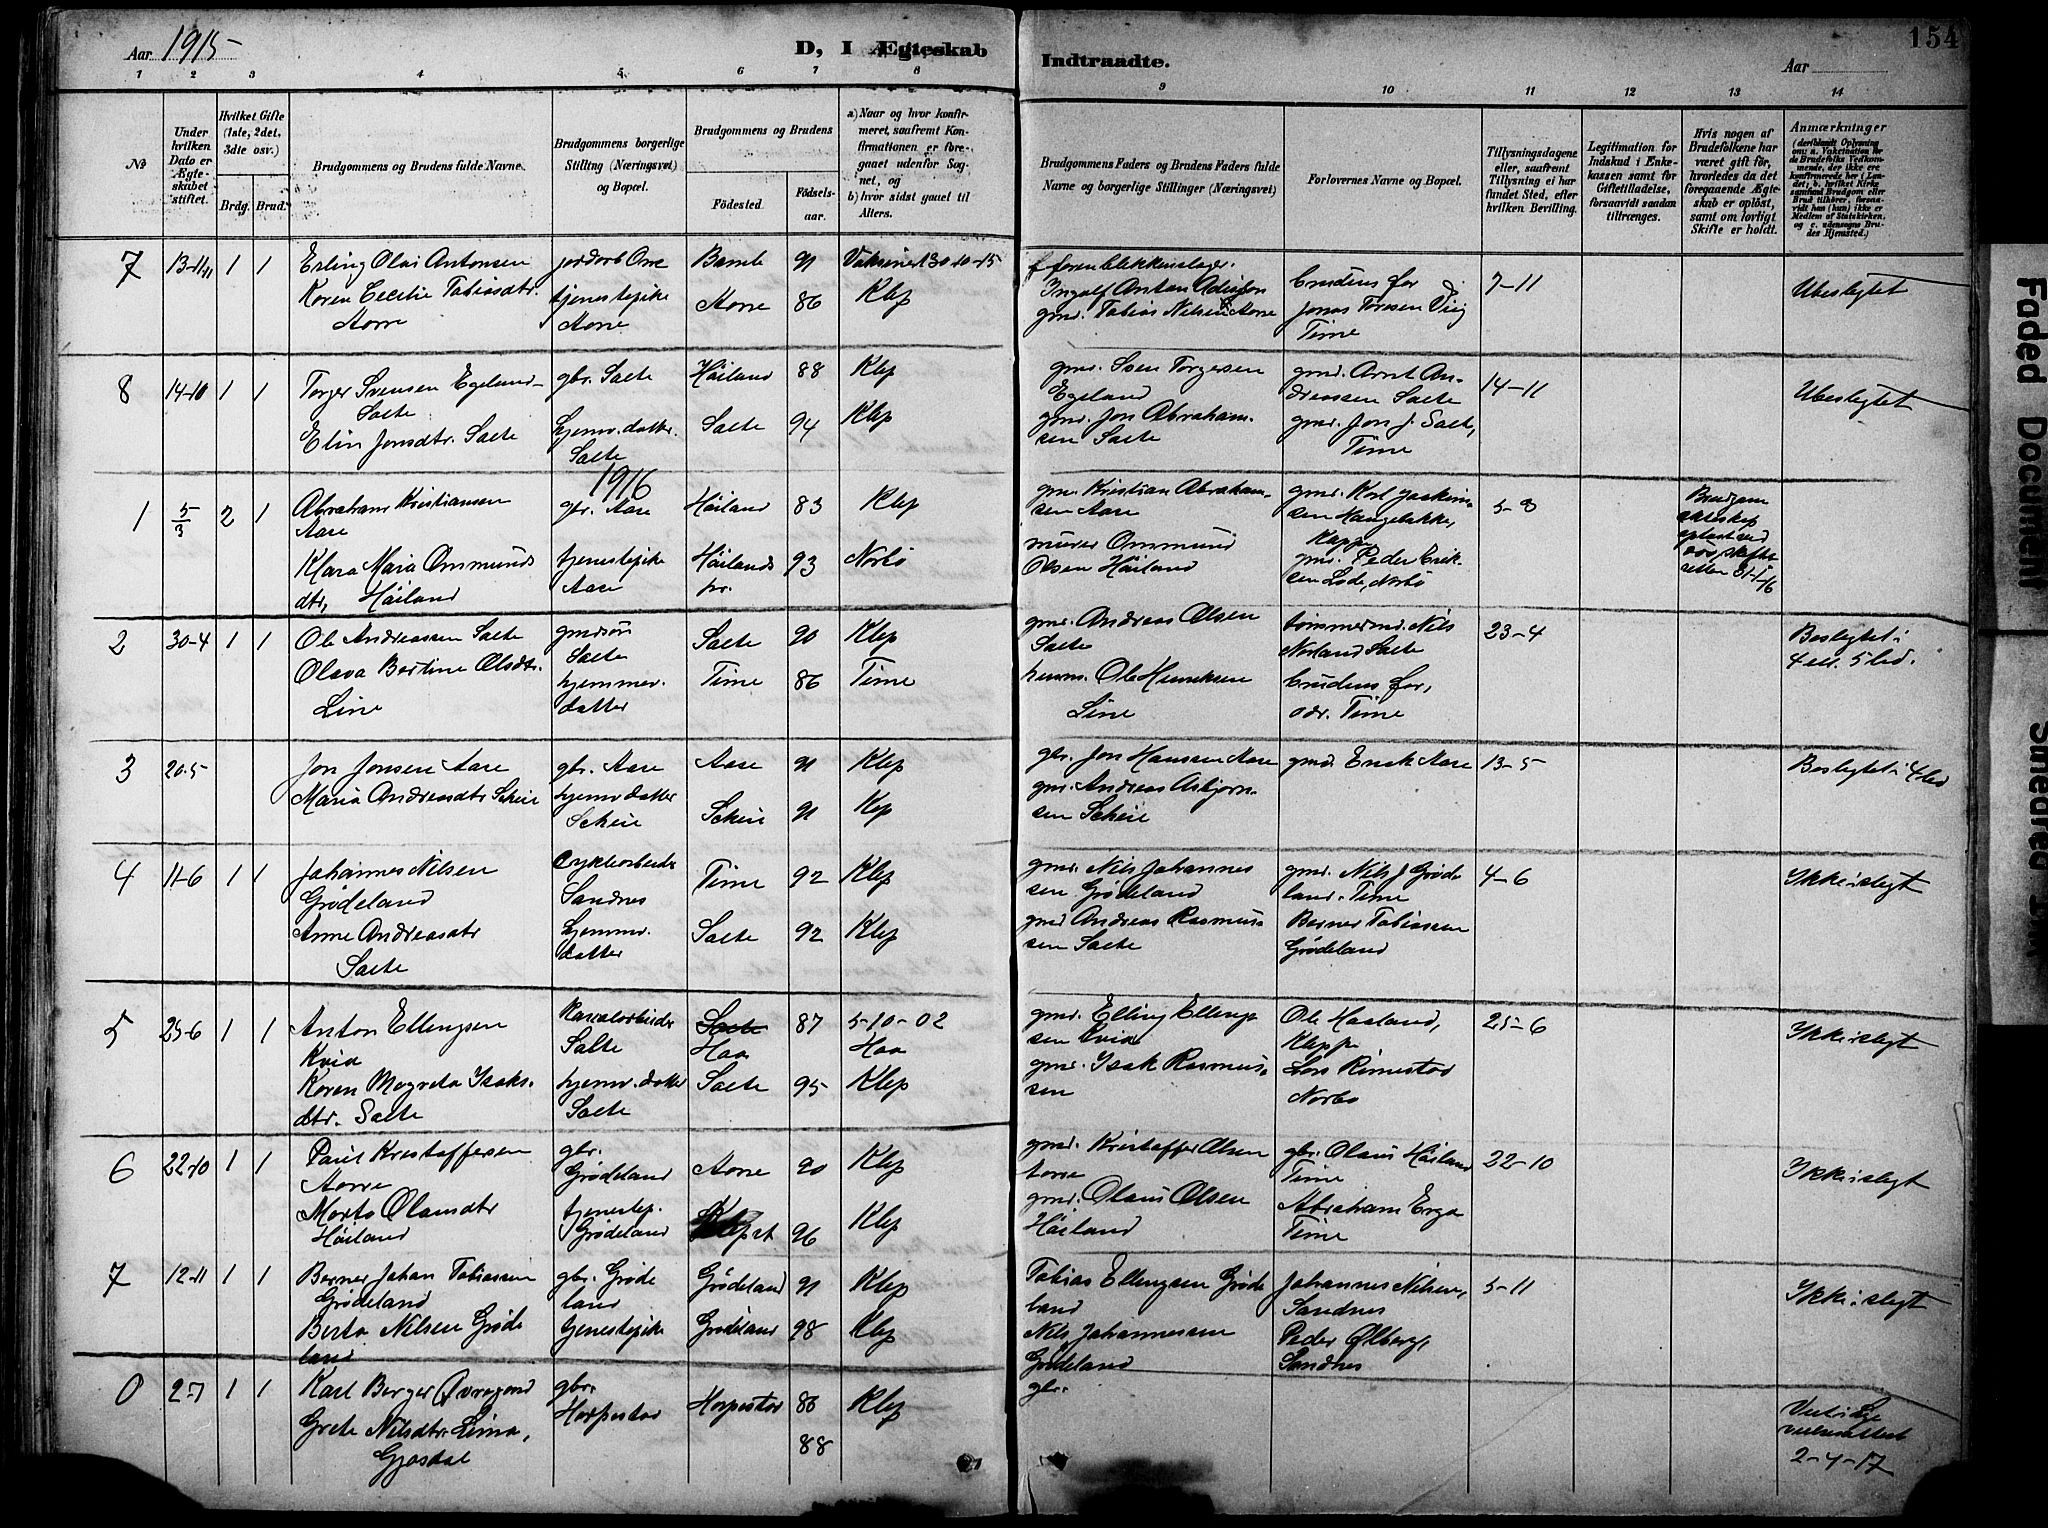 Aar 1915
D, I Ægteskab
Indtraadte.
154
Aar
1 2 3 4 5 6 7 8 9 10 11 12 13 14
No
Under hvilken Dato er Ægteskabet stiftet.
Hvilket Gifte (1ste, 2det, 3die osv.)
Brdg. Brud.
Brudgommens og Brudens fulde Navne.
Brudgommens borgerlige Stilling (Næringsvei) og Bopæl.
Brudgommens og Brudens
Fødested. Fødselsaar.
a) Naar og hvor konfirmeret, saafremt Konfirmationen er foregaaet udenfor Sognet, og
b) hvor sidst gaaet til Alters.
Brudgommens Faders og Brudens Faders fulde Navne og borgerlige Stillinger (Næringsvei)
Forlovernes Navne og Bopæl.
Tillysningsdagene eller, saafremt Tillysning ei har fundet Sted, efter hvilken Bevilling.
Legitimation for Indskud i Enkekassen samt for Giftetilladelse, forsaavidt saadan tiltrænges.
Hvis nogen af Brudefolkene har været gift før, hvorledes da det foregaaende Ægteskab er opløst, samt om lovligt Skifte er holdt.
Anmærkninger
7 13-11 1 1 Erling Olai Antonsen
Karen Cecilie Tobiasdtr.
Aorre
jordarb. Orre
tjenestepike
Aorre
Bamle 91 Vaksinert 30-10-15
Aorre 86 Klep
f. foren blikkenslager.
Ingolf Anton
gmd. Tobias Nilsen Aorre
Brudens far
Jonas Toresen Vig
Time
7-11
Ubeslegtet
8 14-10 1 1 Torger Svensen Egeland
Salte
Elin Jonsdtr. Salte
gbr. Salte
hjemv. datter.
Salte
Høiland 88 Klep
Salte 94 Klep
gmd. Sven Torgersen
Egeland
gmd. Jon Abraham.
sen Salte
gmd. Arnt An-
dreassen Salte
gmd. Jon J. Salte,
Time
14-11
Ubeslegtet
1916
1 5/3 2 1 Abraham Kristiansen
Aase
Klara Maria Ommunds
dtr, Høiland
gbr. Aase
tjenestepike
Aase
Høiland 83 Klep
Høilands 93 Norbø
pr.
gm. Kristian Abraham-
sen Aase
murer Ommund
Olsen Høiland
gmd. Karl Joakim-
sen Haugebakke,
Kleppe
gmd. Peder Erik-
sen Lode, Norbø
5-3
Brudgom
ekteskap
opløst ved
2 30-4 1 1 Ole Andreassen Salte
Olava Bertine Olsdtr.
Line
gmdsøn
Salte
hjemmev.
datter
Salte 90 Klep
Time 86 Time
gmd. Andreas Olsen
Salte
husm. Ole Henriksen
Line
tømmermd. Nils
Norland Salte
Brudens far,
adr. Time
23-4
Beslegtet i
4 ell. 5 led.
3 20-5 Jon Jonsen Aase
Maria Andreasdtr Scheie
gbr. Aase
hjemv. datter
Scheie
Aase 91 Klep
Scheie 91 Kep
gbr. Jon Hanssen Aase
gm. Andreas Asbjørn-
sen Scheie
gmd. Enok Aase
13-5
Beslegtet i 4 led
4 11-6 1 1 Johannes Nilsen
Grødeland
Anne Andreasdtr
Salte
Cyklearbeider
Sandnes
hjemmv.
datter
Time 92 Klep
Salte 92 Klep
gmd. Nils Johannes
sen Grødeland
gmd Andreas Rasmus
sen Salte
gmd. Nils J Grøde
land. Time
Berner Tobiassen
Grødeland
4-6
Ikke i slegt
5 25-6 1 1 Anton Ellingsen
Kvia
Karen Magreta Isaks-
dtr. Salte
Kanalarbeider
Salte
hjemv. datter
Salte
Salte
Haa 87 5-10-02
Haa
Salte 95 Klep
gmd. Elling Elling
sen Kvia
gmd. Isak Rasmus-
sen
Ole Haaland,
Kleppe
Lars Rimestad
Norbø
25-6
Ikke i slegt
6 22-10 1 1 Paul Kristoffersen
Aorre
Marta Olausdtr
Høiland
gbr.
Grødeland
tjenestep.
Grødeland
Aorre 90 Klep
96 Klep
gmd. Kristoffer Olsen
Aorre
gmd. Olaus Olsen
Høiland
gbr. Olaus Høiland
Time
Abraham Erga
Time
22-10
Ikke i slegt
7 12-11 1 1 Berner Johan Tobiassen
Grødeland
Berta Nilsen Grøde
land
gbr. Grøde
land
tjenestepike
Grødeland 91 Klep
Grødeland 98 Klep
Tobias Ellingsen Grøde
land
Nils Johannessen
Grødeland
Johannes Nilsen,
Sandnes
Peder Ølberg,
Sandnes
5-11
Ikke i slegt
0 2-7 1 1 Karl Berger
Grete Nilsdtr. Lima,
Gjesdal
gbr.
Horpestad
Horpestad 86 Klep
88
gbr.
2-4-17
Faded Document
Smeared Ink